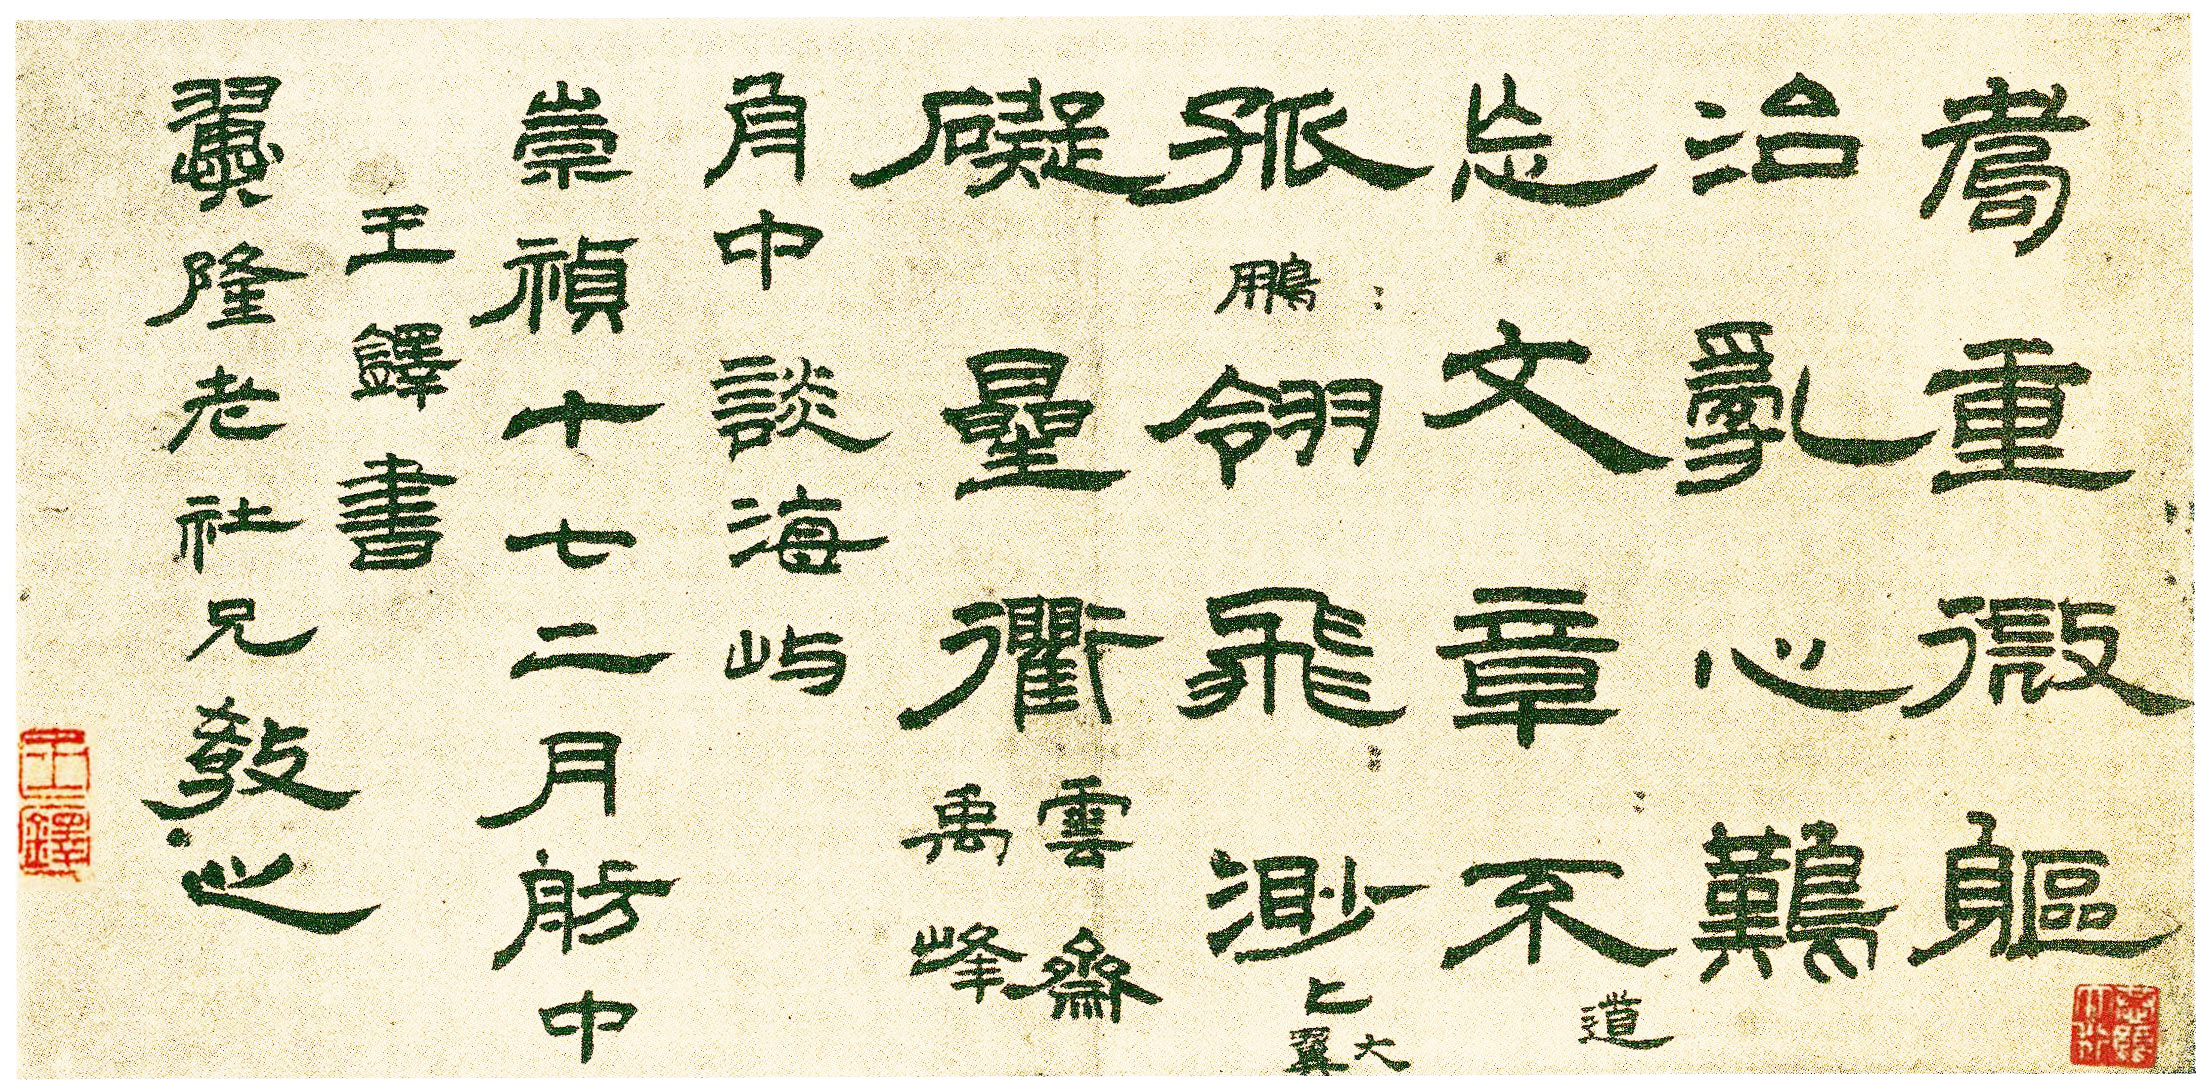 重微軀
治亂心難
忘文章不道
孤鵬翎飛渺上大翼
礙量衢雲齋禹峰
舟中談海屿
崇禎十七二月舫中
王鐸書
翼隆老社兄教之
王鐸